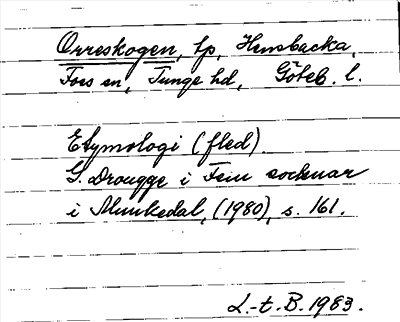 Orreskogen, tp, Hensbacka,
Foss sn, Tunge hd, Göteb. l.
Etymologi (fled).
G. Drougge i Fem socknar
i Munkedal, (1980), s. 161.
L.-t. B. 1983.